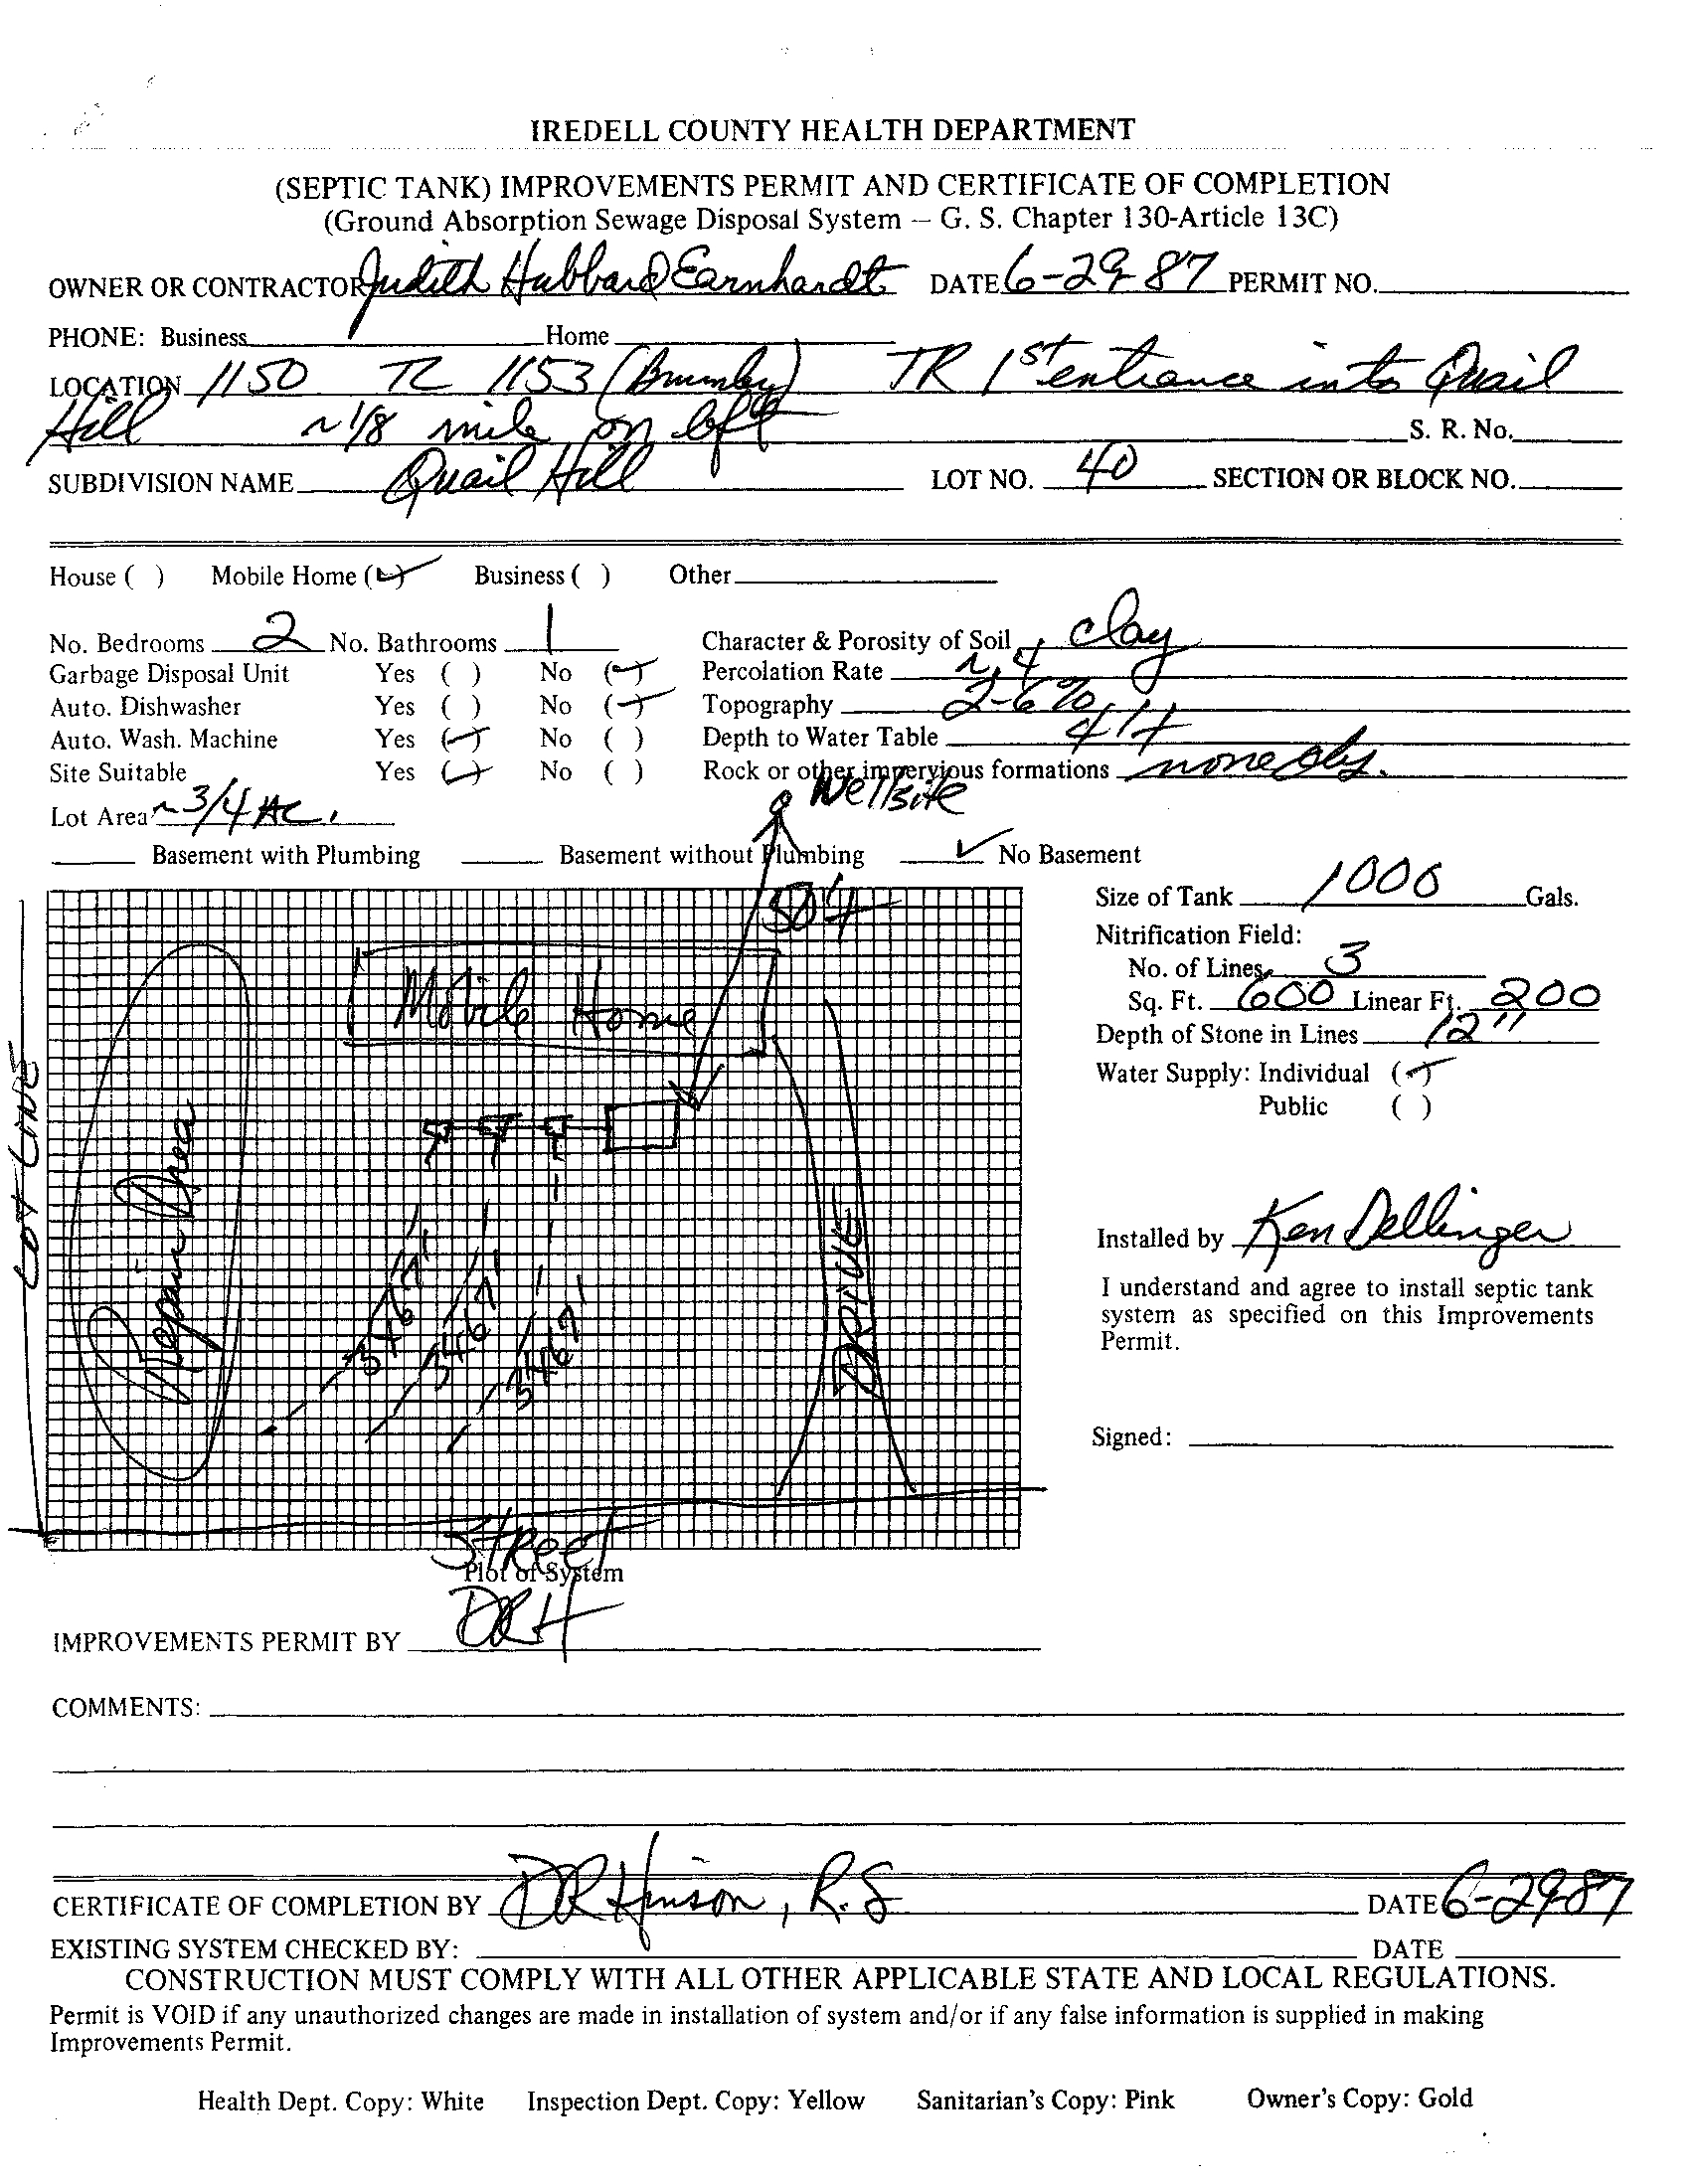 IREDELL COUNTY HEALTH DEPARTMENT
(SEPTIC TANK) IMPROVEMENTS PERMIT AND CERTIFICATE OF COMPLETION
(Ground Absorption Sewage Disposal System – G. S. Chapter 130-Article 13C)
OWNER OR CONTRACTOR Judith Hubbard Earnhardt DATE 6-29-87 PERMIT NO.
PHONE: Business Home
LOCATION 1150 TL 1153 (Brumley) TR 1st entrance into Quail
Hill ~ 1/8 mile on left S. R. No.
SUBDIVISION NAME Quail Hill LOT NO. 40 SECTION OR BLOCK NO.
House ( ) Mobile Home (✓) Business ( ) Other
No. Bedrooms 2 No. Bathrooms 1 Character & Porosity of Soil clay
Garbage Disposal Unit Yes ( ) No (✓) Percolation Rate ~.4
Auto. Dishwasher Yes ( ) No (✓) Topography 2-6%
Auto. Wash. Machine Yes (✓) No ( ) Depth to Water Table 4'+
Site Suitable Yes (✓) No ( ) Rock or other impervious formations none obs.
Wellsite
Lot Area ~3/4 AC.
Basement with Plumbing Basement without Plumbing ✓ No Basement
50'+
Size of Tank 1000 Gals.
Nitrification Field:
No. of Lines 3
Sq. Ft. 600 Linear Ft. 200
Depth of Stone in Lines 12"
Water Supply: Individual (✓)
Public ( )
Mobile Home
LOT LINE
Repair Area
3'x67'
3'x67'
3'x67'
DRIVE
Installed by Ken Dellinger
I understand and agree to install septic tank
system as specified on this Improvements
Permit.
Signed:
Street
Plot of System
IMPROVEMENTS PERMIT BY DRH
COMMENTS:
CERTIFICATE OF COMPLETION BY DR Hinson, R.S DATE 6-29-87
EXISTING SYSTEM CHECKED BY: DATE
CONSTRUCTION MUST COMPLY WITH ALL OTHER APPLICABLE STATE AND LOCAL REGULATIONS.
Permit is VOID if any unauthorized changes are made in installation of system and/or if any false information is supplied in making
Improvements Permit.
Health Dept. Copy: White Inspection Dept. Copy: Yellow Sanitarian's Copy: Pink Owner's Copy: Gold